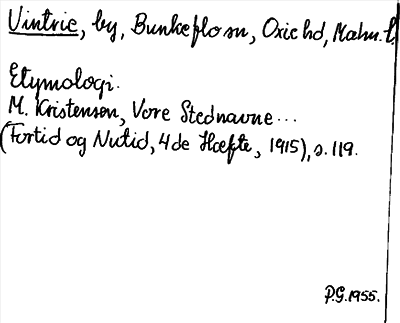 Vintrie, by, Bunkeflo sn, Oxie hd, Malm. l.
Etymologi.
M. Kristensen, Vore Stednavne...
(Fortid og Nutid, 4de Hæfte, 1915), s. 119.
P.G. 1955.